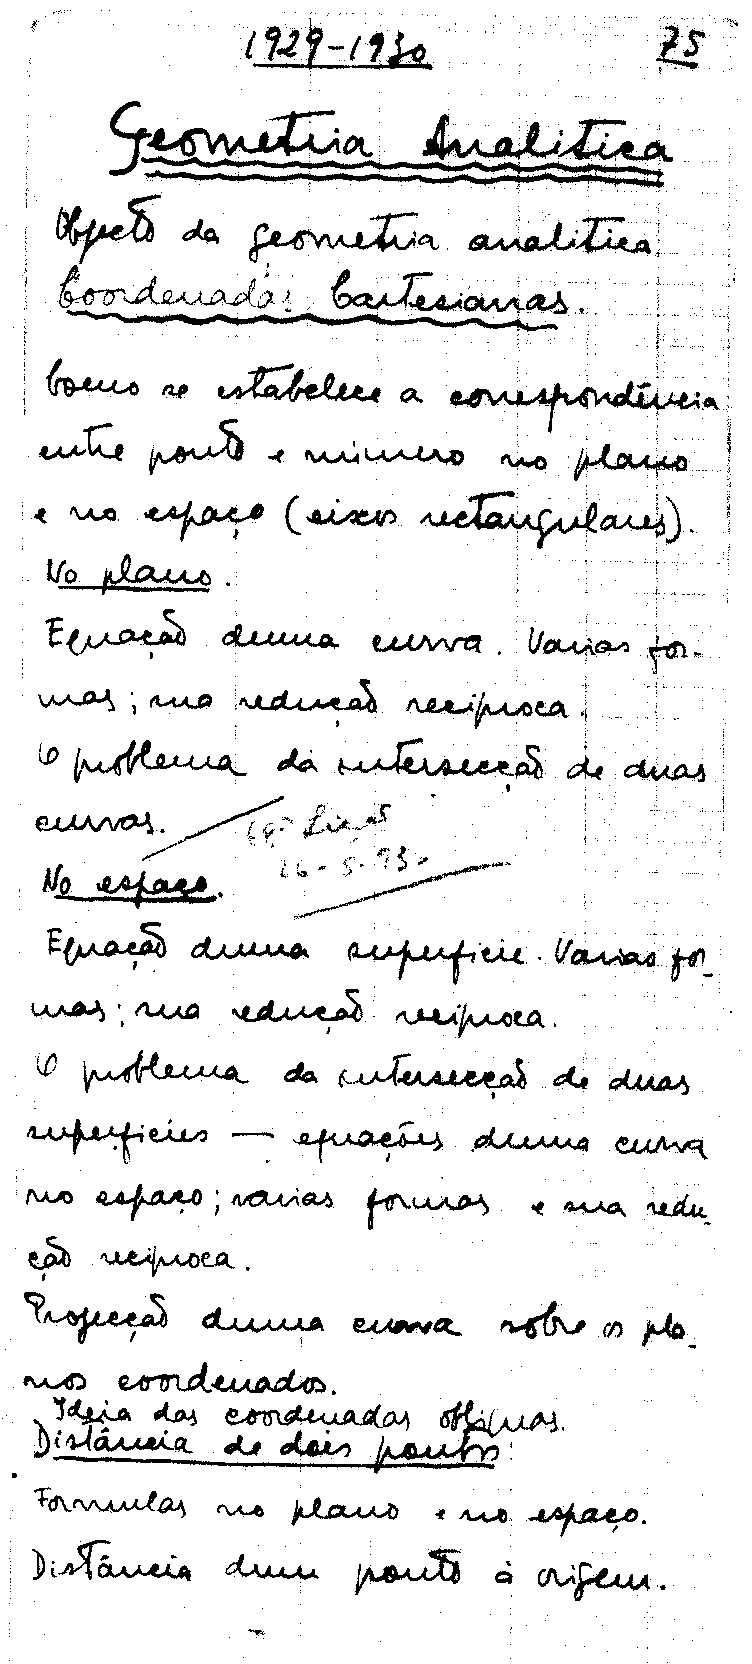 1929-1930
75
Geometria Analitica
Objecto da geometria analitica.
Coordenadas Cartesianas.
Como se estabelece a correspondência
entre ponto e número no plano
e no espaço (eixos rectangulares).
No plano.
Equação duma curva. Varias for-
mas; sua redução reciproca.
O problema da intersecção de duas
curvas.
Lição
26-5-930
No espaço.
Equação duma superficie. Varias for-
mas; sua redução reciproca.
O problema da intersecção de duas
superficies — equações duma curva
no espaço; varias formas e sua redu-
ção reciproca.
Projecção duma curva sobre os pla-
nos coordenados.
Ideia das coordenadas obliquas.
Distância de dois pontos.
Formulas no plano e no espaço.
Distância dum ponto à origem.